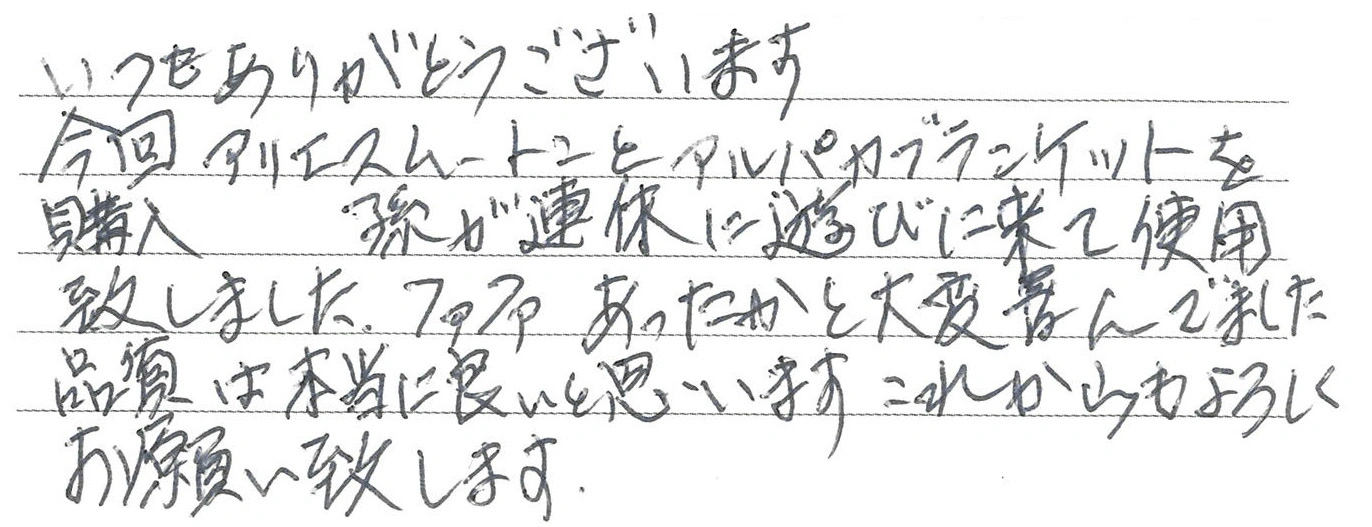 いつもありがとうございます
今回 アリエスムートンと アルパカブランケットを
購入 孫が連休に遊びに来て使用
致しました。フワフワ あったかと大変喜んでました
品質は本当に良いと思います これからもよろしく
お願い致します.